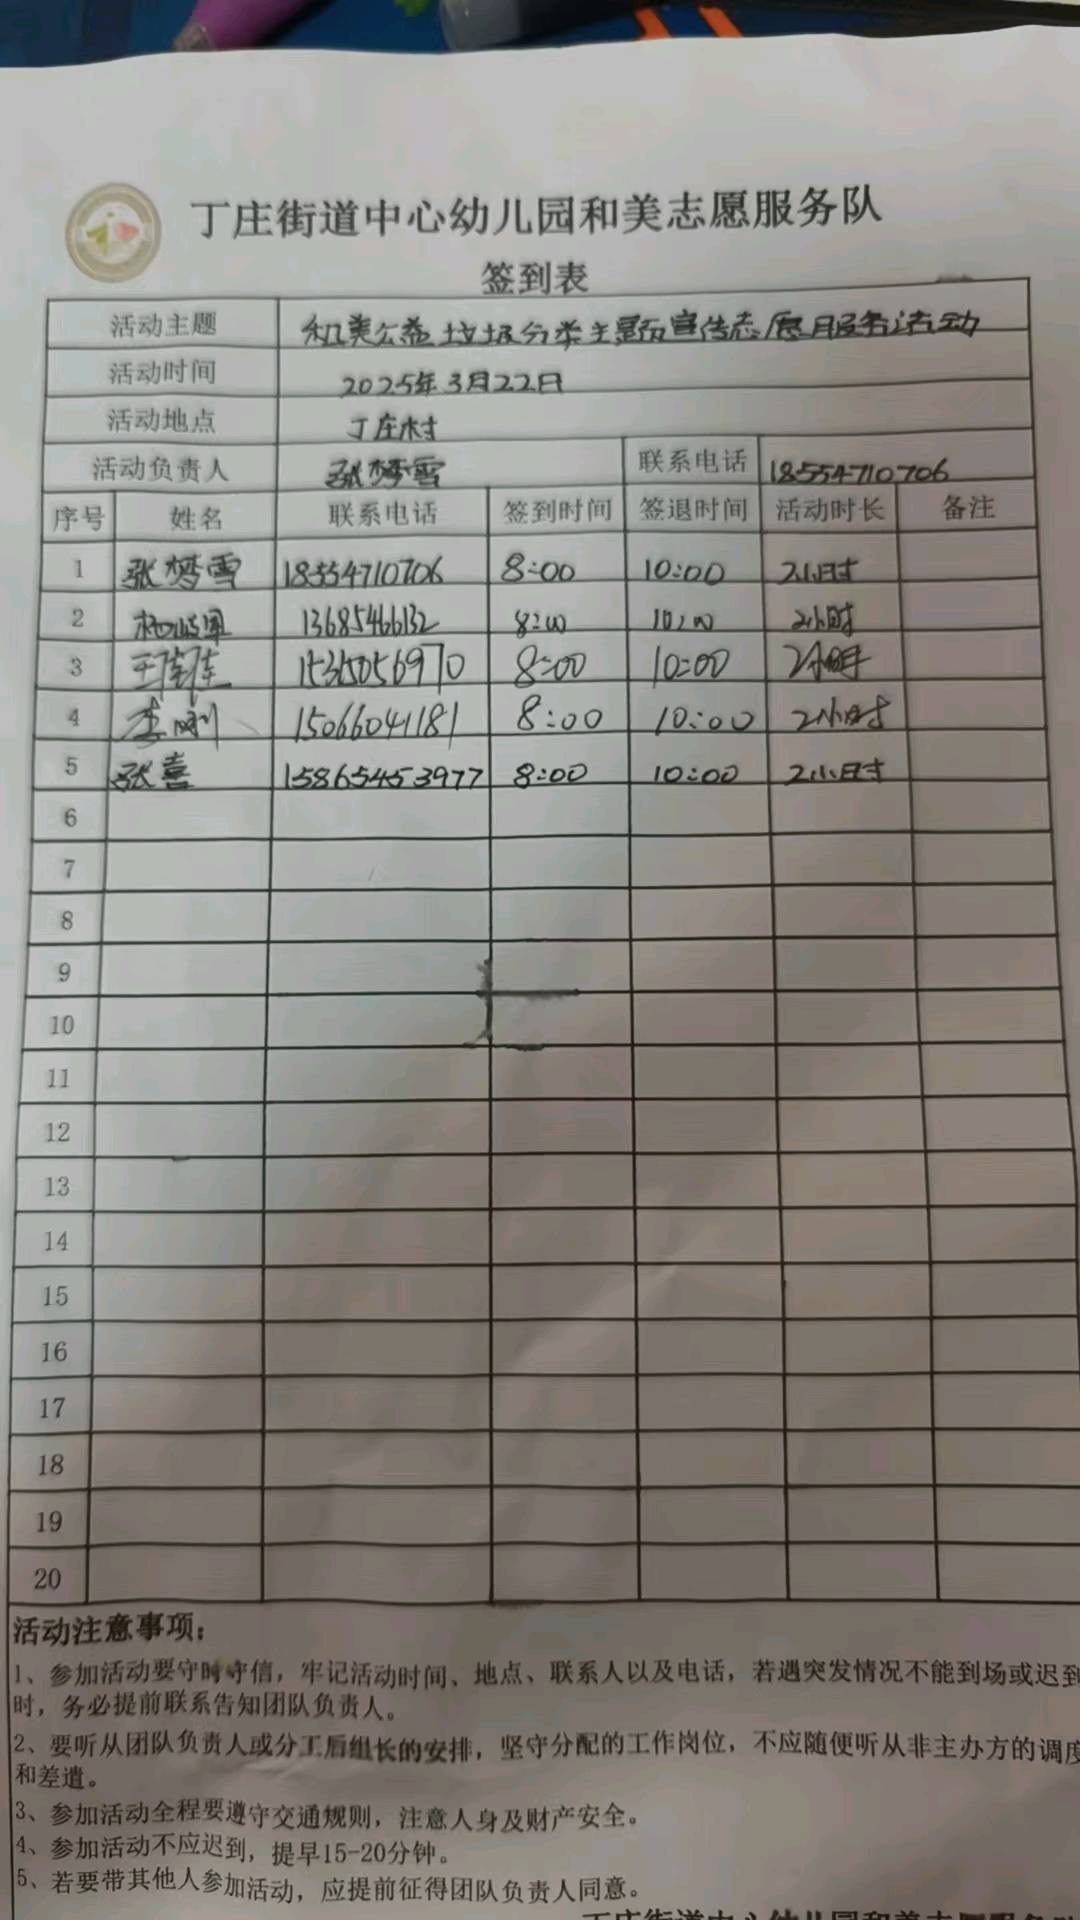 丁庄街道中心幼儿园和美志愿服务队
签到表
活动主题 和美公益 垃圾分类主题宣传志愿服务活动
活动时间 2025年3月22日
活动地点 丁庄村
活动负责人 张梦雪 联系电话 18554710706
序号 姓名 联系电话 签到时间 签退时间 活动时长 备注
1 张梦雪 18554710706 8:00 10:00 2小时
2 8:00 10:00 2小时
3 8:00 10:00 2小时
4 李刚 15066041181 8:00 10:00 2小时
5 张喜 15865453977 8:00 10:00 2小时
6
7
8
9
10
11
12
13
14
15
16
17
18
19
20
活动注意事项：
1、参加活动要守时守信，牢记活动时间、地点、联系人以及电话，若遇突发情况不能到场或迟到
时，务必提前联系告知团队负责人。
2、要听从团队负责人或分工后组长的安排，坚守分配的工作岗位，不应随便听从非主办方的调度
和差遣。
3、参加活动全程要遵守交通规则，注意人身及财产安全。
4、参加活动不应迟到，提早15-20分钟。
5、若要带其他人参加活动，应提前征得团队负责人同意。
丁庄街道中心幼儿园和美志愿服务队